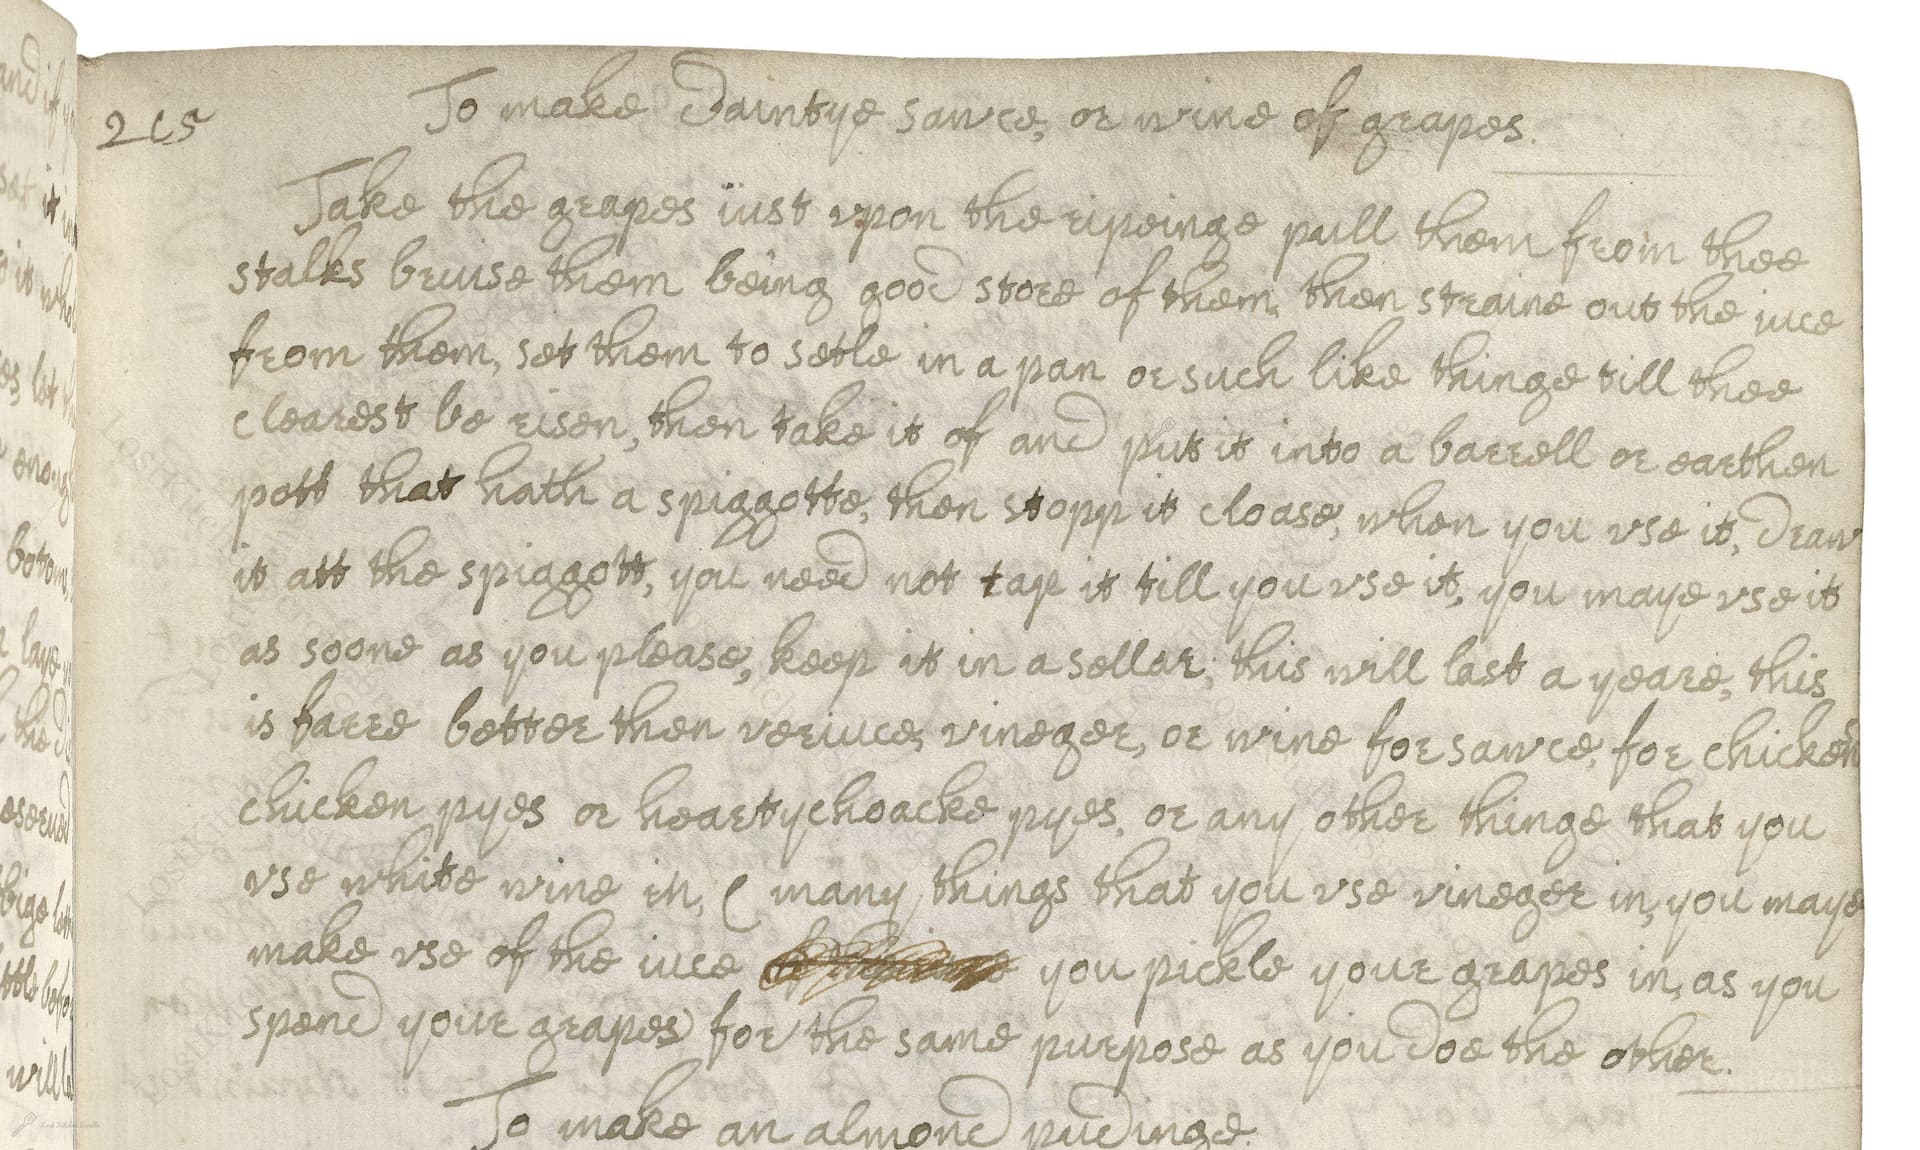 215
To make daintye sawce, or wine of grapes.
Take the grapes iust vpon the ripeinge pull them from thee
stalks bruise them being good store of them, then straine out the iuce
from them, set them to setle in a pan or such like thinge till thee
clearest be risen, then take it of and put it into a barrell or earthen
pott that hath a spiggotte, then stopp it cloase, when you vse it, draw
it att the spiggott, you need not tap it till you vse it, you maye vse it
as soone as you please, keep it in a sellar, this will last a yeare, this
is farre better then veriuce, vineger, or wine for sawce, for chicken
chicken pyes or heartychoacke pyes, or any other thinge that you
vse white wine in, ( many things that you vse vineger in, you maye
make vse of the iuce you pickle your grapes in, as you
spend your grapes) for the same purpose as you doe the other.
To make an almond pudinge.